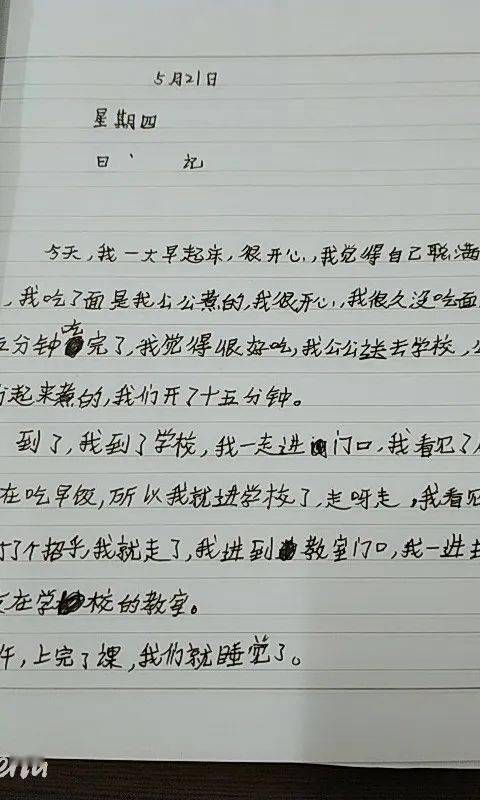 5月21日
星期四
日、 记
今天,我一大早起床,很开心,我觉得自己聪满
,我吃了面是我公公煮的,我很开心,我很久没吃面
五分钟吃完了,我觉得很好吃,我公公送去学校,
起来煮的,我们开了十五分钟。
到了,我到了学校,我一走进门口,我看见了
在吃早饭,所以我就进学校了,走呀走,我看见
了个招乎,我就走了,我进到教室门口,我一进
在学校的教室。
午,上完了课,我们就睡觉了。